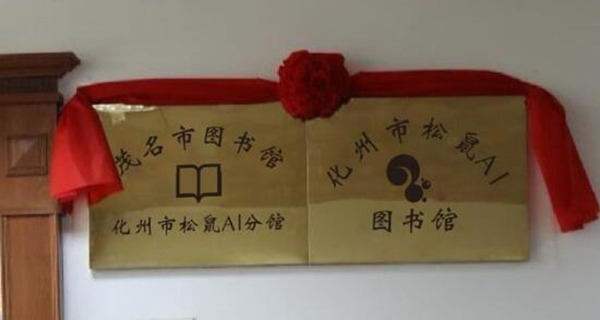 茂名市图书馆
化州市松鼠AI分馆
化州市松鼠AI
图书馆